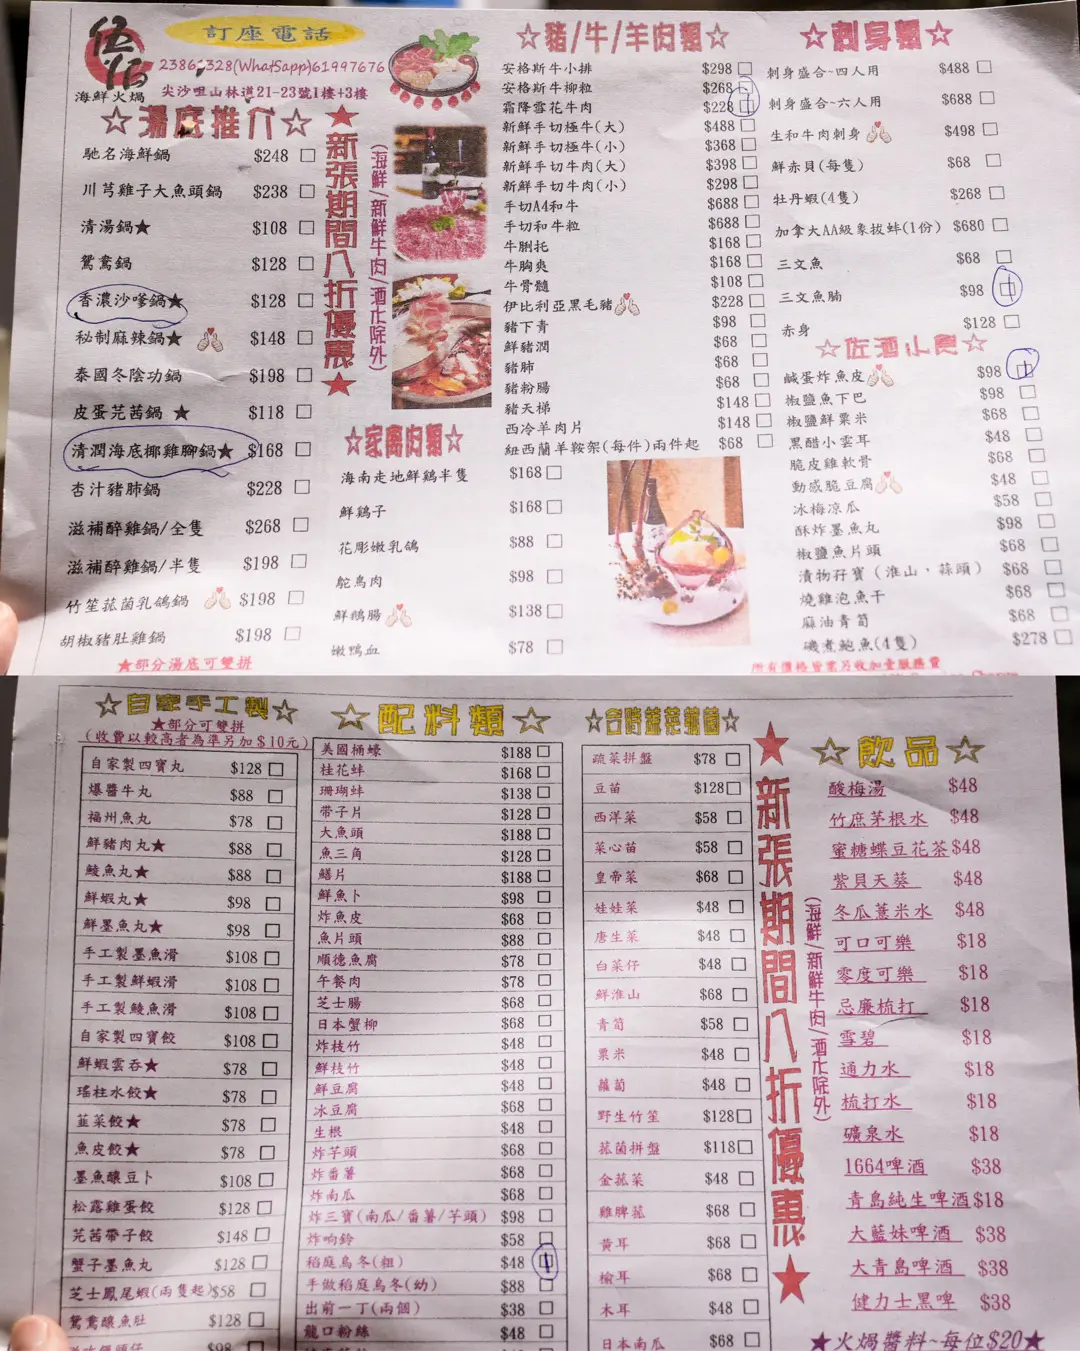 伍佰
海鮮火焗
訂座電話
(WhatSapp)61997676
尖沙咀山林道21-23號1樓+3樓
☆湯底推介☆
馳名海鮮鍋 $248
川芎雞子大魚頭鍋 $238
清湯鍋★ $108
鴛鴦鍋 $128
香濃沙嗲鍋★ $128
秘制麻辣鍋★ $148
泰國冬陰功鍋 $198
皮蛋芫茜鍋 ★ $118
清潤海底椰雞腳鍋★ $168
杏汁豬肺鍋 $228
滋補醉雞鍋/全隻 $268
滋補醉雞鍋/半隻 $198
竹笙菰菌乳鴿鍋 $198
胡椒豬肚雞鍋 $198
★部分湯底可雙拼
★新張期間八折優惠★
(海鮮/新鮮牛肉/酒水除外)
☆家禽肉類☆
海南走地鮮鷄半隻 $168
鮮鷄子 $168
花彫嫩乳鴿 $88
鴕鳥肉 $98
鮮鵝腸 $138
嫩鴨血 $78
☆豬/牛/羊肉類☆
安格斯牛小排 $298
安格斯牛柳粒 $268
霜降雪花牛肉 $228
新鮮手切極牛(大) $488
新鮮手切極牛(小) $368
新鮮手切牛肉(大) $398
新鮮手切牛肉(小) $298
手切A4和牛 $688
手切和牛粒 $688
牛脷托 $168
牛胸爽 $168
牛骨髓 $108
伊比利亞黑毛豬 $228
豬下青 $98
鮮豬潤 $68
豬肺 $68
豬粉腸 $68
豬天梯 $148
西冷羊肉片 $148
紐西蘭羊鞍架(每件)兩件起 $68
☆刺身類☆
刺身盛合~四人用 $488
刺身盛合~六人用 $688
生和牛肉刺身 $498
鮮赤貝(每隻) $68
牡丹蝦(4隻) $268
加拿大AA級象拔蚌(1份) $680
三文魚 $68
三文魚腩 $98
赤身 $128
☆佐酒小食☆
鹹蛋炸魚皮 $98
椒鹽魚下巴 $98
椒鹽鮮粟米 $68
黑醋小雲耳 $48
脆皮雞軟骨 $68
動感脆豆腐 $48
冰梅凉瓜 $58
酥炸墨魚丸 $98
椒鹽魚片頭 $68
漬物孖寶(淮山，蒜頭) $68
燒雞泡魚干 $68
麻油青筍 $68
磯煮鮑魚(4隻) $278
所有價格皆需另收加壹服務費
☆自家手工製☆
★部分可雙拼
(收費以較高者為準另加$10元)
自家製四寶丸 $128
爆醬牛丸 $88
福州魚丸 $78
鮮豬肉丸★ $88
鯪魚丸★ $88
鮮蝦丸★ $98
鮮墨魚丸★ $98
手工製墨魚滑 $108
手工製鮮蝦滑 $108
手工製鯪魚滑 $108
自家製四寶餃 $108
鮮蝦雲吞★ $78
瑤柱水餃★ $78
韮菜餃★ $78
魚皮餃★ $78
墨魚釀豆卜 $108
松露雞蛋餃 $128
芫茜帶子餃 $148
蟹子墨魚丸 $128
芝士鳳尾蝦(兩隻起) $58
鴛鴦釀魚肚 $128
$98
☆配料類☆
美國桶蠔 $188
桂花蚌 $168
珊瑚蚌 $138
帶子片 $128
大魚頭 $188
魚三角 $128
鱔片 $188
鮮魚卜 $98
炸魚皮 $68
魚片頭 $88
順德魚腐 $78
午餐肉 $78
芝士腸 $68
日本蟹柳 $68
炸枝竹 $48
鮮枝竹 $48
鮮豆腐 $48
冰豆腐 $68
生根 $48
炸芋頭 $68
炸番薯 $68
炸南瓜 $68
炸三寶(南瓜/番薯/芋頭) $98
炸响鈴 $58
稻庭烏冬(粗) $48
手做稻庭烏冬(幼) $88
出前一丁(兩個) $38
龍口粉絲 $48
☆合時蔬菜菰菌☆
蔬菜拼盤 $78
豆苗 $128
西洋菜 $58
菜心苗 $58
皇帝菜 $68
娃娃菜 $48
唐生菜 $48
白菜仔 $48
鮮淮山 $68
青筍 $58
粟米 $48
蘿蔔 $48
野生竹笙 $128
菰菌拼盤 $118
金菰菜 $48
雞脾菰 $68
黃耳 $68
榆耳 $68
木耳 $48
日本南瓜 $68
★新張期間八折優惠★
(海鮮/新鮮牛肉/酒水除外)
☆飲品☆
酸梅湯 $48
竹庶茅根水 $48
蜜糖蝶豆花茶 $48
紫貝天葵 $48
冬瓜薏米水 $48
可口可樂 $18
零度可樂 $18
忌廉梳打 $18
雪碧 $18
通力水 $18
梳打水 $18
礦泉水 $18
1664啤酒 $38
青島純生啤酒 $18
大藍妹啤酒 $38
大青島啤酒 $38
健力士黑啤 $38
★火焗醬料~每位$20★